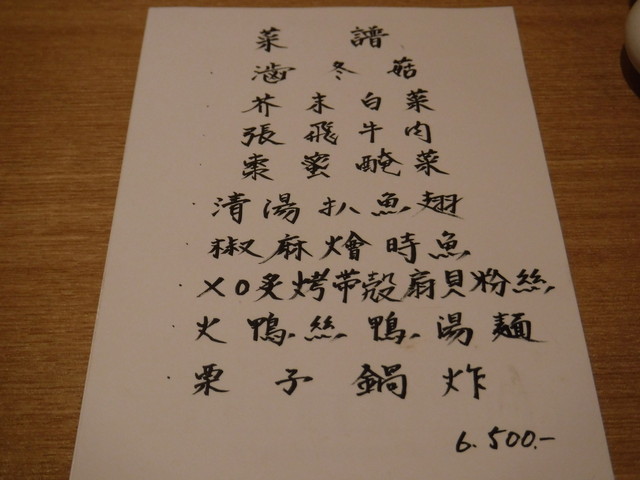 菜 譜
滷 冬 菇
芥 末 白 菜
張 飛 牛 肉
棗 蜜 醃 菜
清 湯 扒 魚 翅
椒 麻 燴 時 魚
XO炙烤帶殼扇貝粉絲
火 鴨 絲 鴨 湯 麵
栗 子 鍋 炸
6.500.-